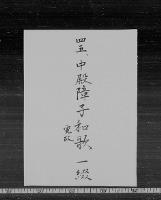 四五、中殿障子和歌 一綴
寛政